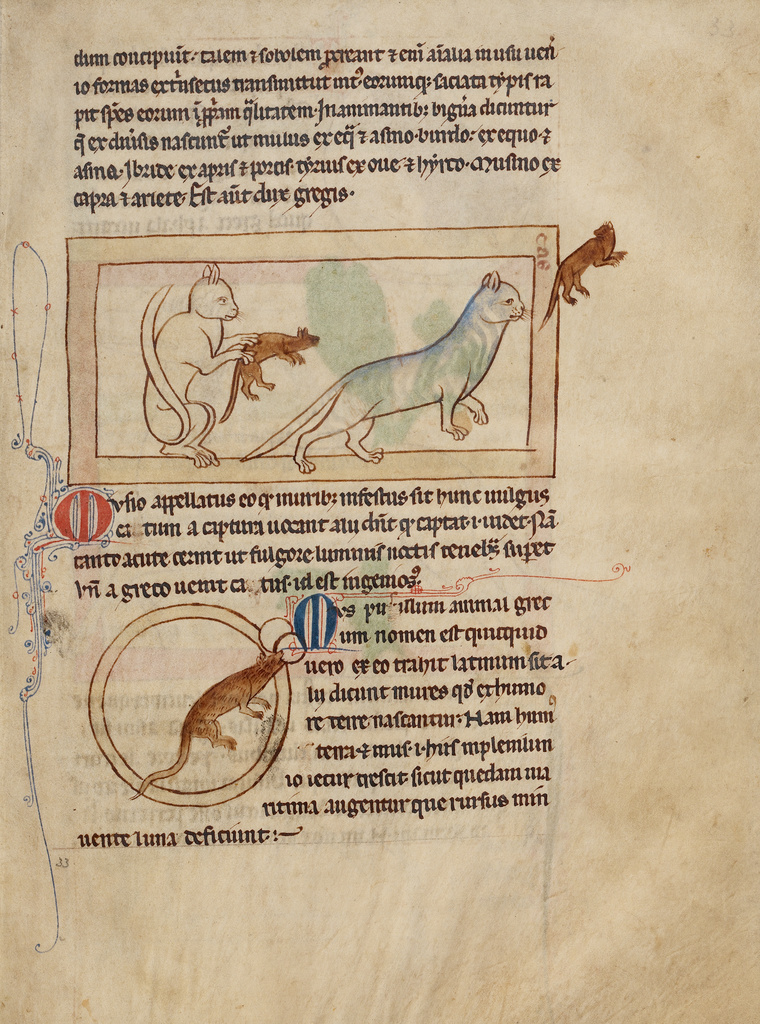 dum concipiunt: talem & sobolem procreant & enĩ aĩalia in usu uen
io formas extrĩsecus transmittũt int' eorumq; saciata typis ra
pit spẽs eorum ĩ ppriam q̃litatem. In animantib; bigña dicuntur
q̃ ex diũsis nascunt̃ ut mulus ex eq̃ & asino. burdo: ex equo &
asina. Ibride ex apris & porcis. tyrius ex oue & hyrco. Musino ex
capra & ariete. Est aũt dux gregis.
cat
Musio appellatus eo q̃ murib; infestus sit hunc uulgus
ca tum a captura uocant alii dñt q̃ captat .i. uidet. Nã
tanto acute cernit ut fulgore luminis noctis tenebs̃ supet
Vñ a greco uenit ca tus. id est ingenios'.
Mus pusillum animal grec
um nomen est quicquid
uero ex eo trahit latinum fit a
lii dicunt mures qd̃ ex humo
re terre nascantur: Nam hum
terra & mus .i. his in plenilun
io iecur crescit sicut quedam ma
ritima augentur que rursus min
uente luna deficiunt:
33
33